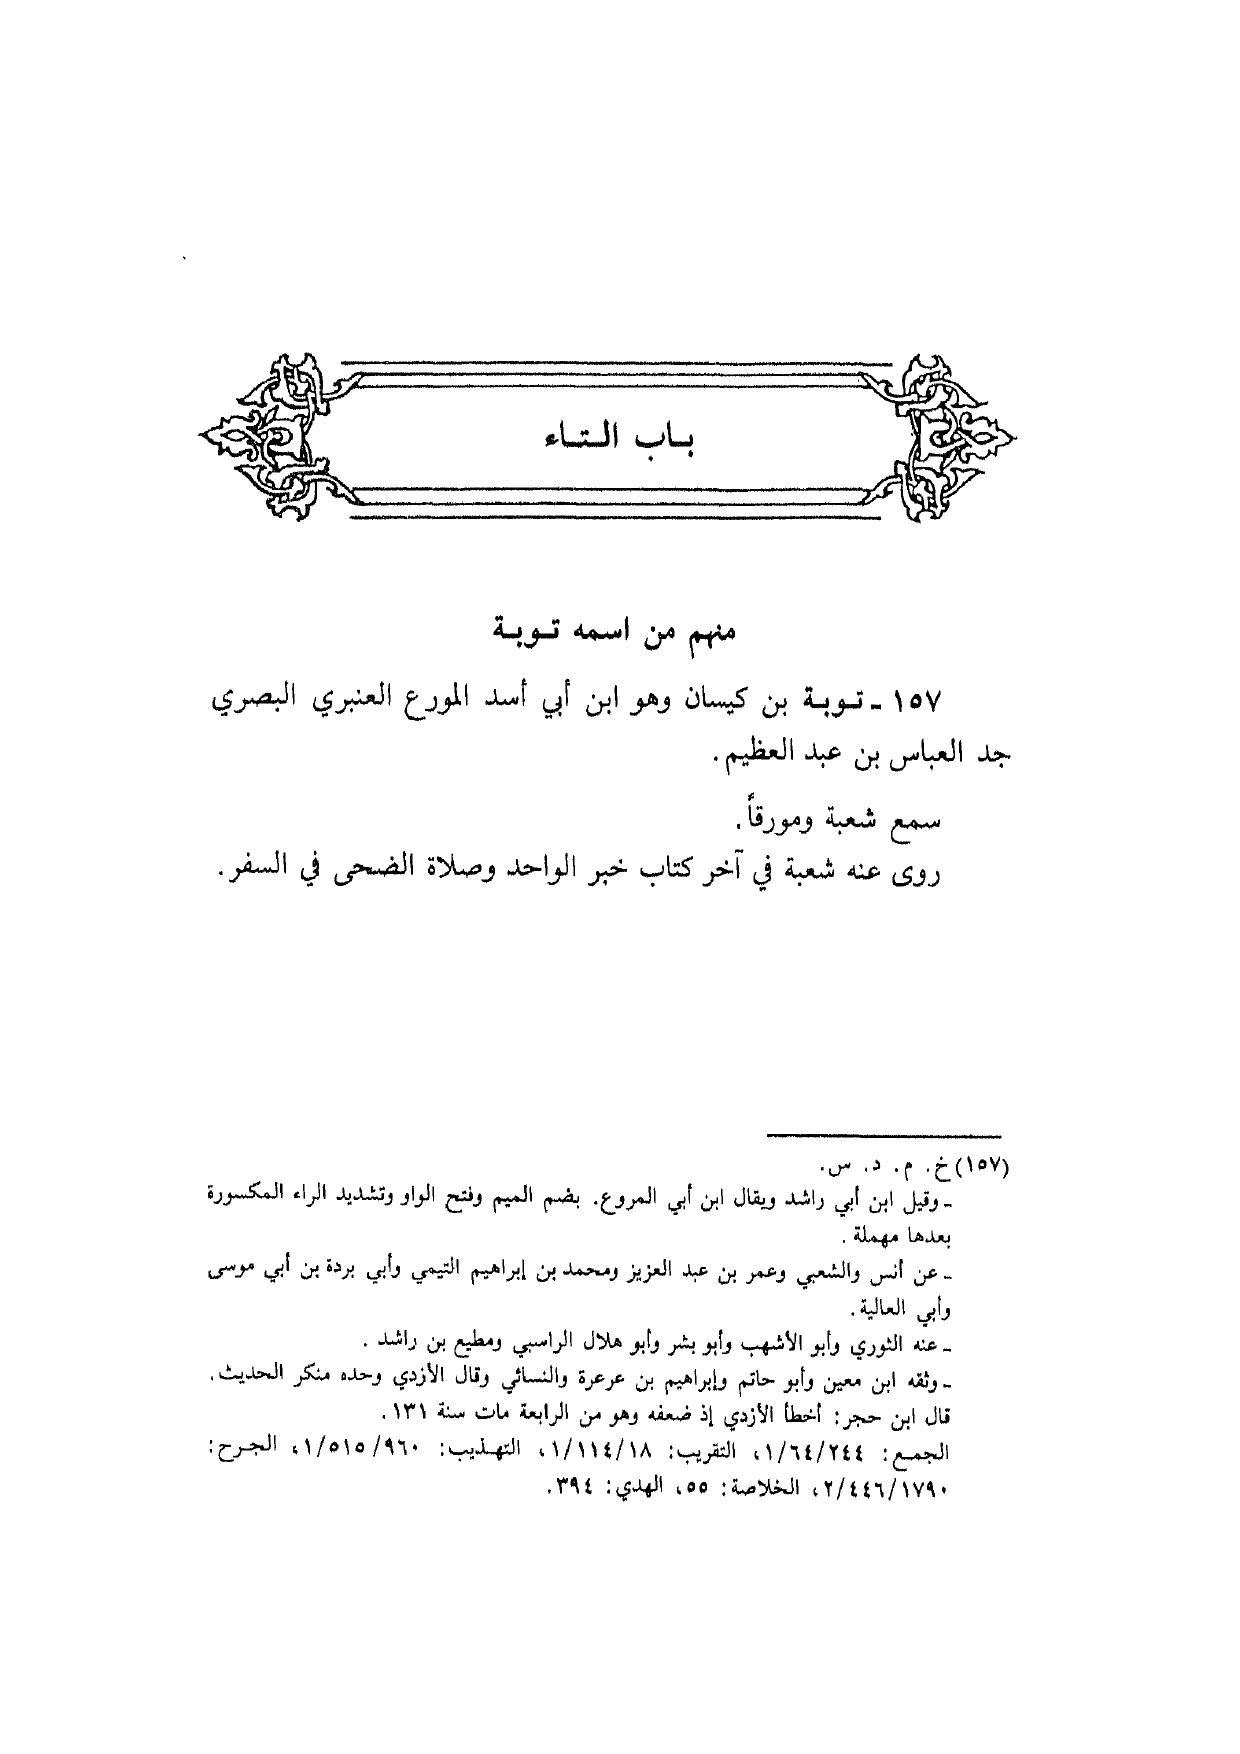 باب التاء
منهم من اسمه توبة
١٥٧ ـ توبة بن كيسان وهو ابن أبي أسد المورع العنبري البصري
جد العباس بن عبد العظيم.
سمع شعبة ومورقاً.
روى عنه شعبة في آخر كتاب خبر الواحد وصلاة الضحى في السفر.
(١٥٧) خ. م. د. س.
ـ وقيل ابن أبي راشد ويقال ابن أبي المروع. بضم الميم وفتح الواو وتشديد الراء المكسورة
بعدها مهملة.
ـ عن أنس والشعبي وعمر بن عبد العزيز ومحمد بن إبراهيم التيمي وأبي بردة بن أبي موسى
وأبي العالية.
ـ عنه الثوري وأبو الأشهب وأبو بشر وأبو هلال الراسبي ومطيع بن راشد.
ـ وثقه ابن معين وأبو حاتم وإبراهيم بن عرعرة والنسائي وقال الأزدي وحده منكر الحديث.
قال ابن حجر: أخطأ الأزدي إذ ضعفه وهو من الرابعة مات سنة ١٣١.
الجمع: ١/٦٤/٢٤٤، التقريب: ١/١١٤/١٨، التهذيب: ١/٥١٥/٩٦٠، الجرح:
٢/٤٤٦/١٧٩٠، الخلاصة: ٥٥، الهدي: ٣٩٤.